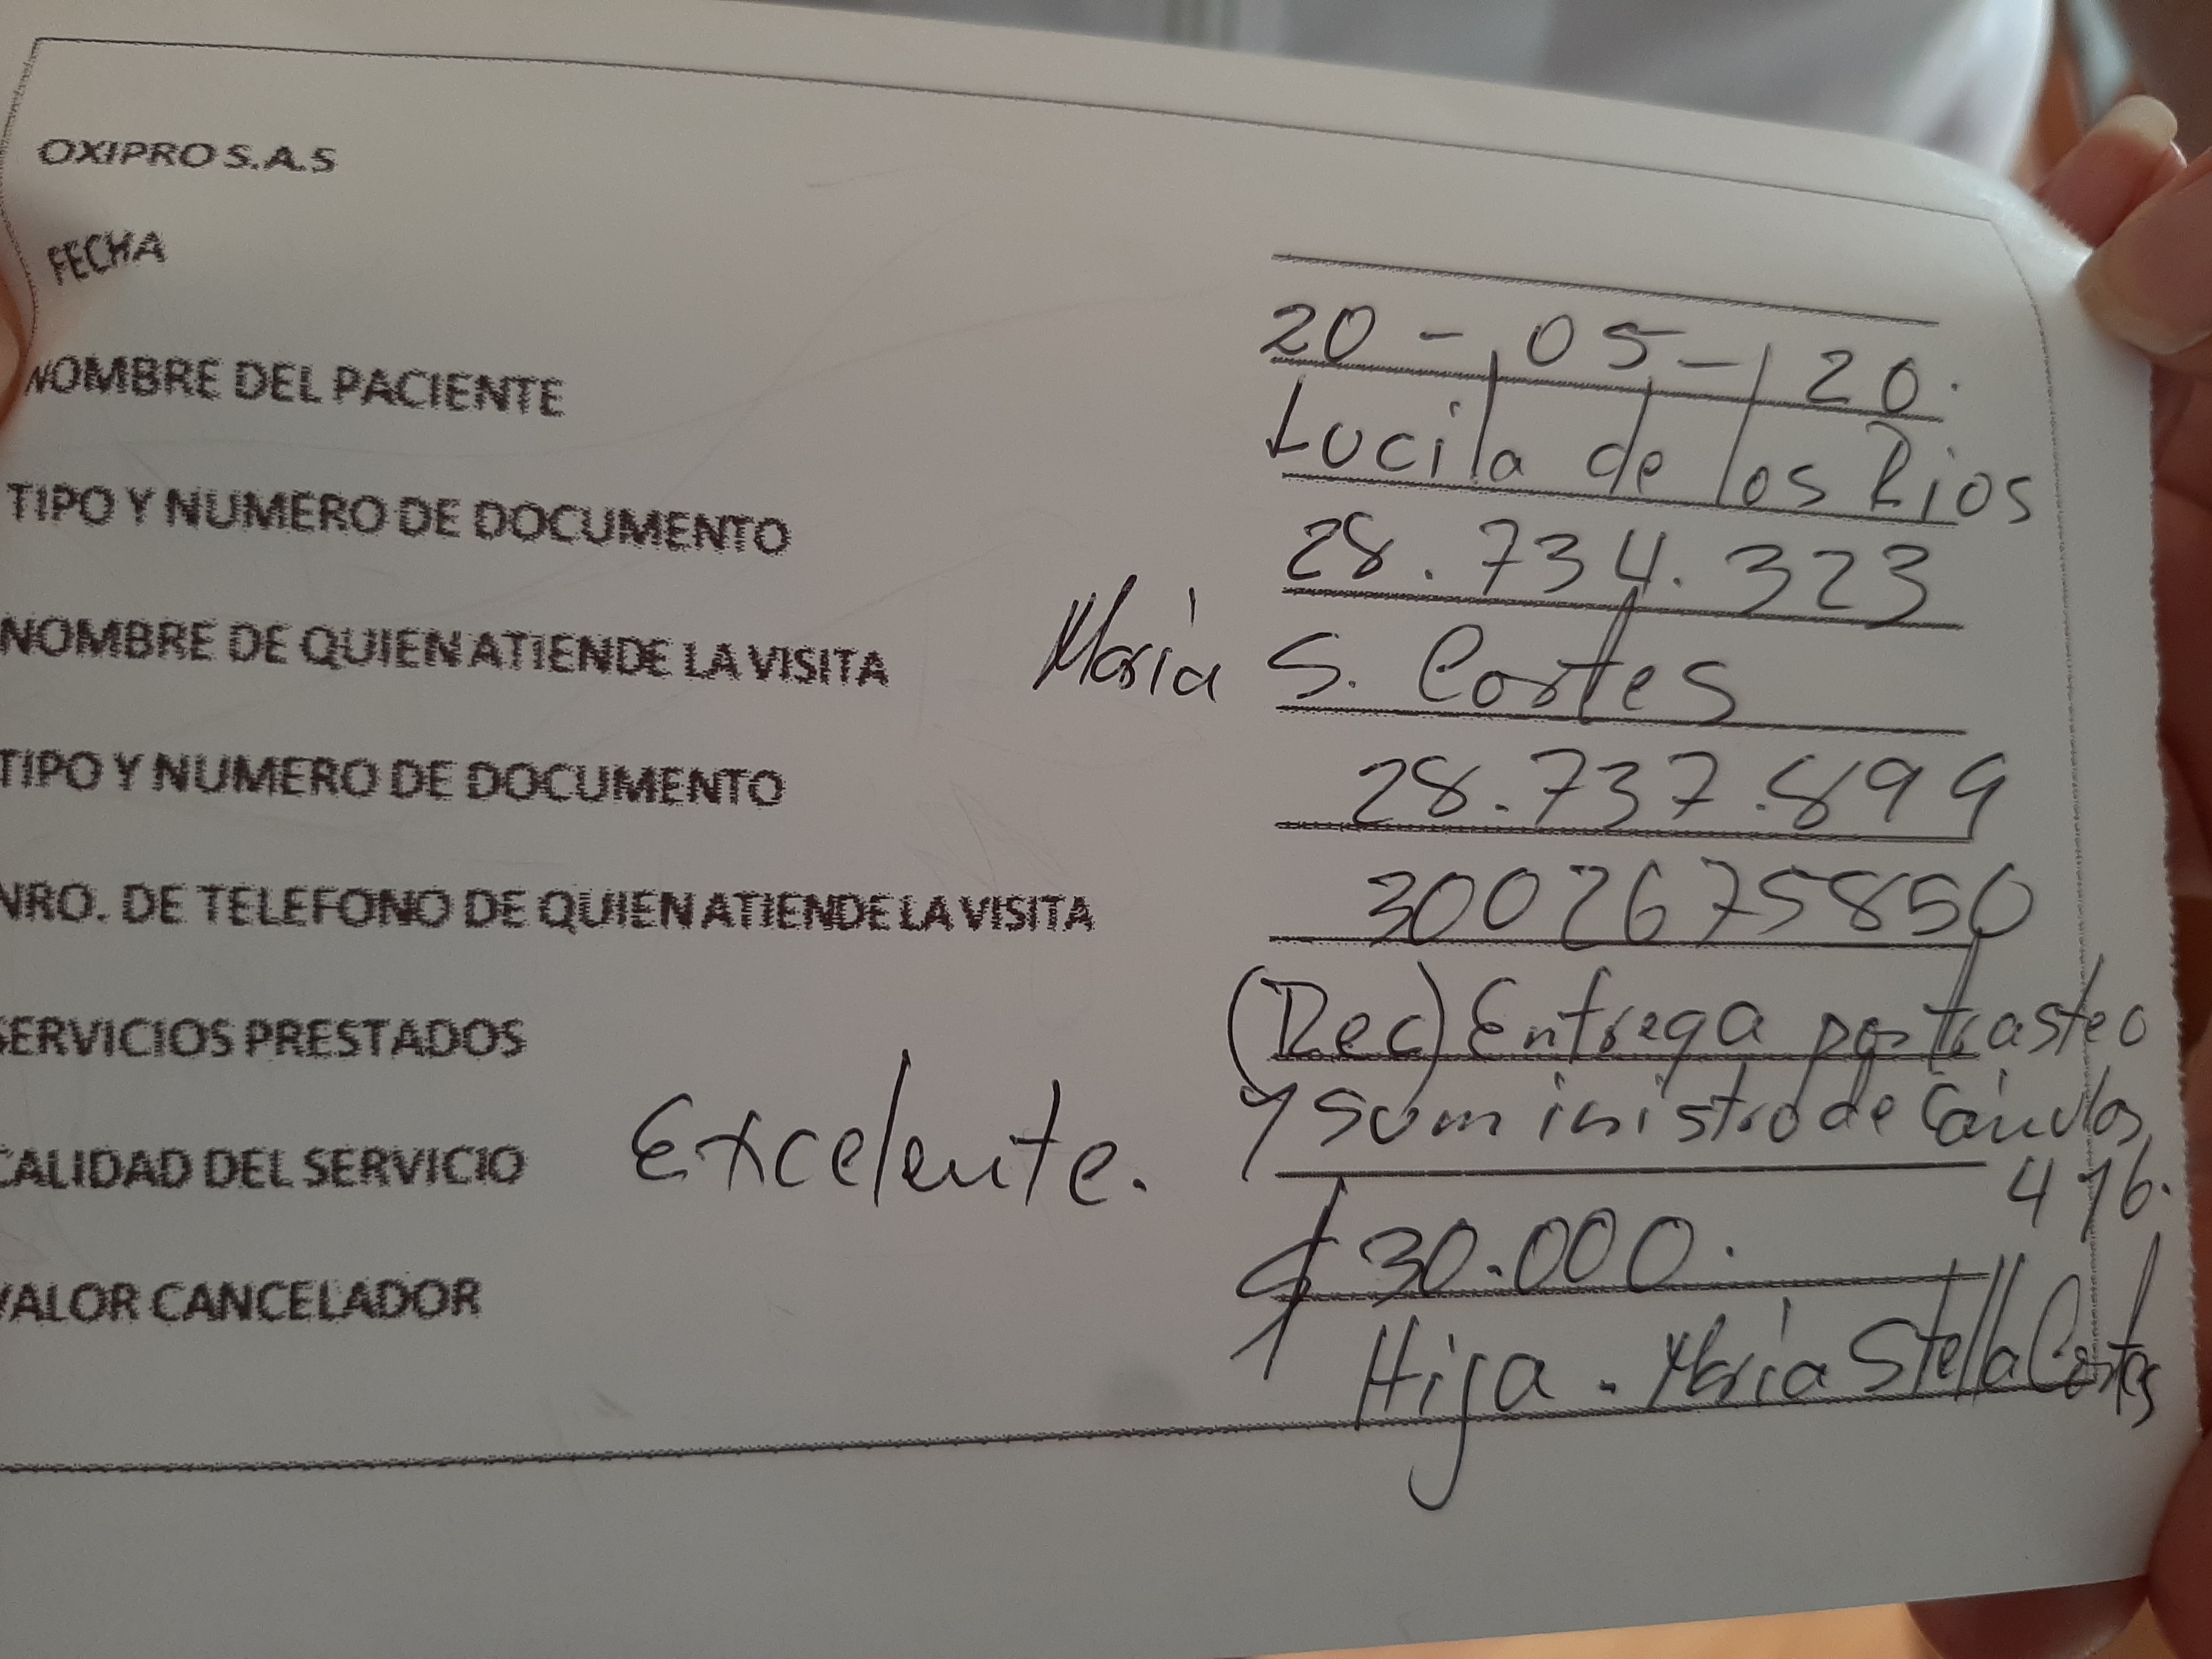 OXIPRO S.A.S
FECHA
20 - 05 - 20.
NOMBRE DEL PACIENTE
Lucila de los Rios
TIPO Y NUMERO DE DOCUMENTO
28.734.323
NOMBRE DE QUIEN ATIENDE LA VISITA
María S. Cortes
TIPO Y NUMERO DE DOCUMENTO
28.737.899
NRO. DE TELEFONO DE QUIEN ATIENDE LA VISITA
3002675850
SERVICIOS PRESTADOS
(Rec) Entrega por trasteo
y suministro de Cánulas
CALIDAD DEL SERVICIO Excelente.
VALOR CANCELADOR
$ 30.000.
Hija. María Stella Cortes